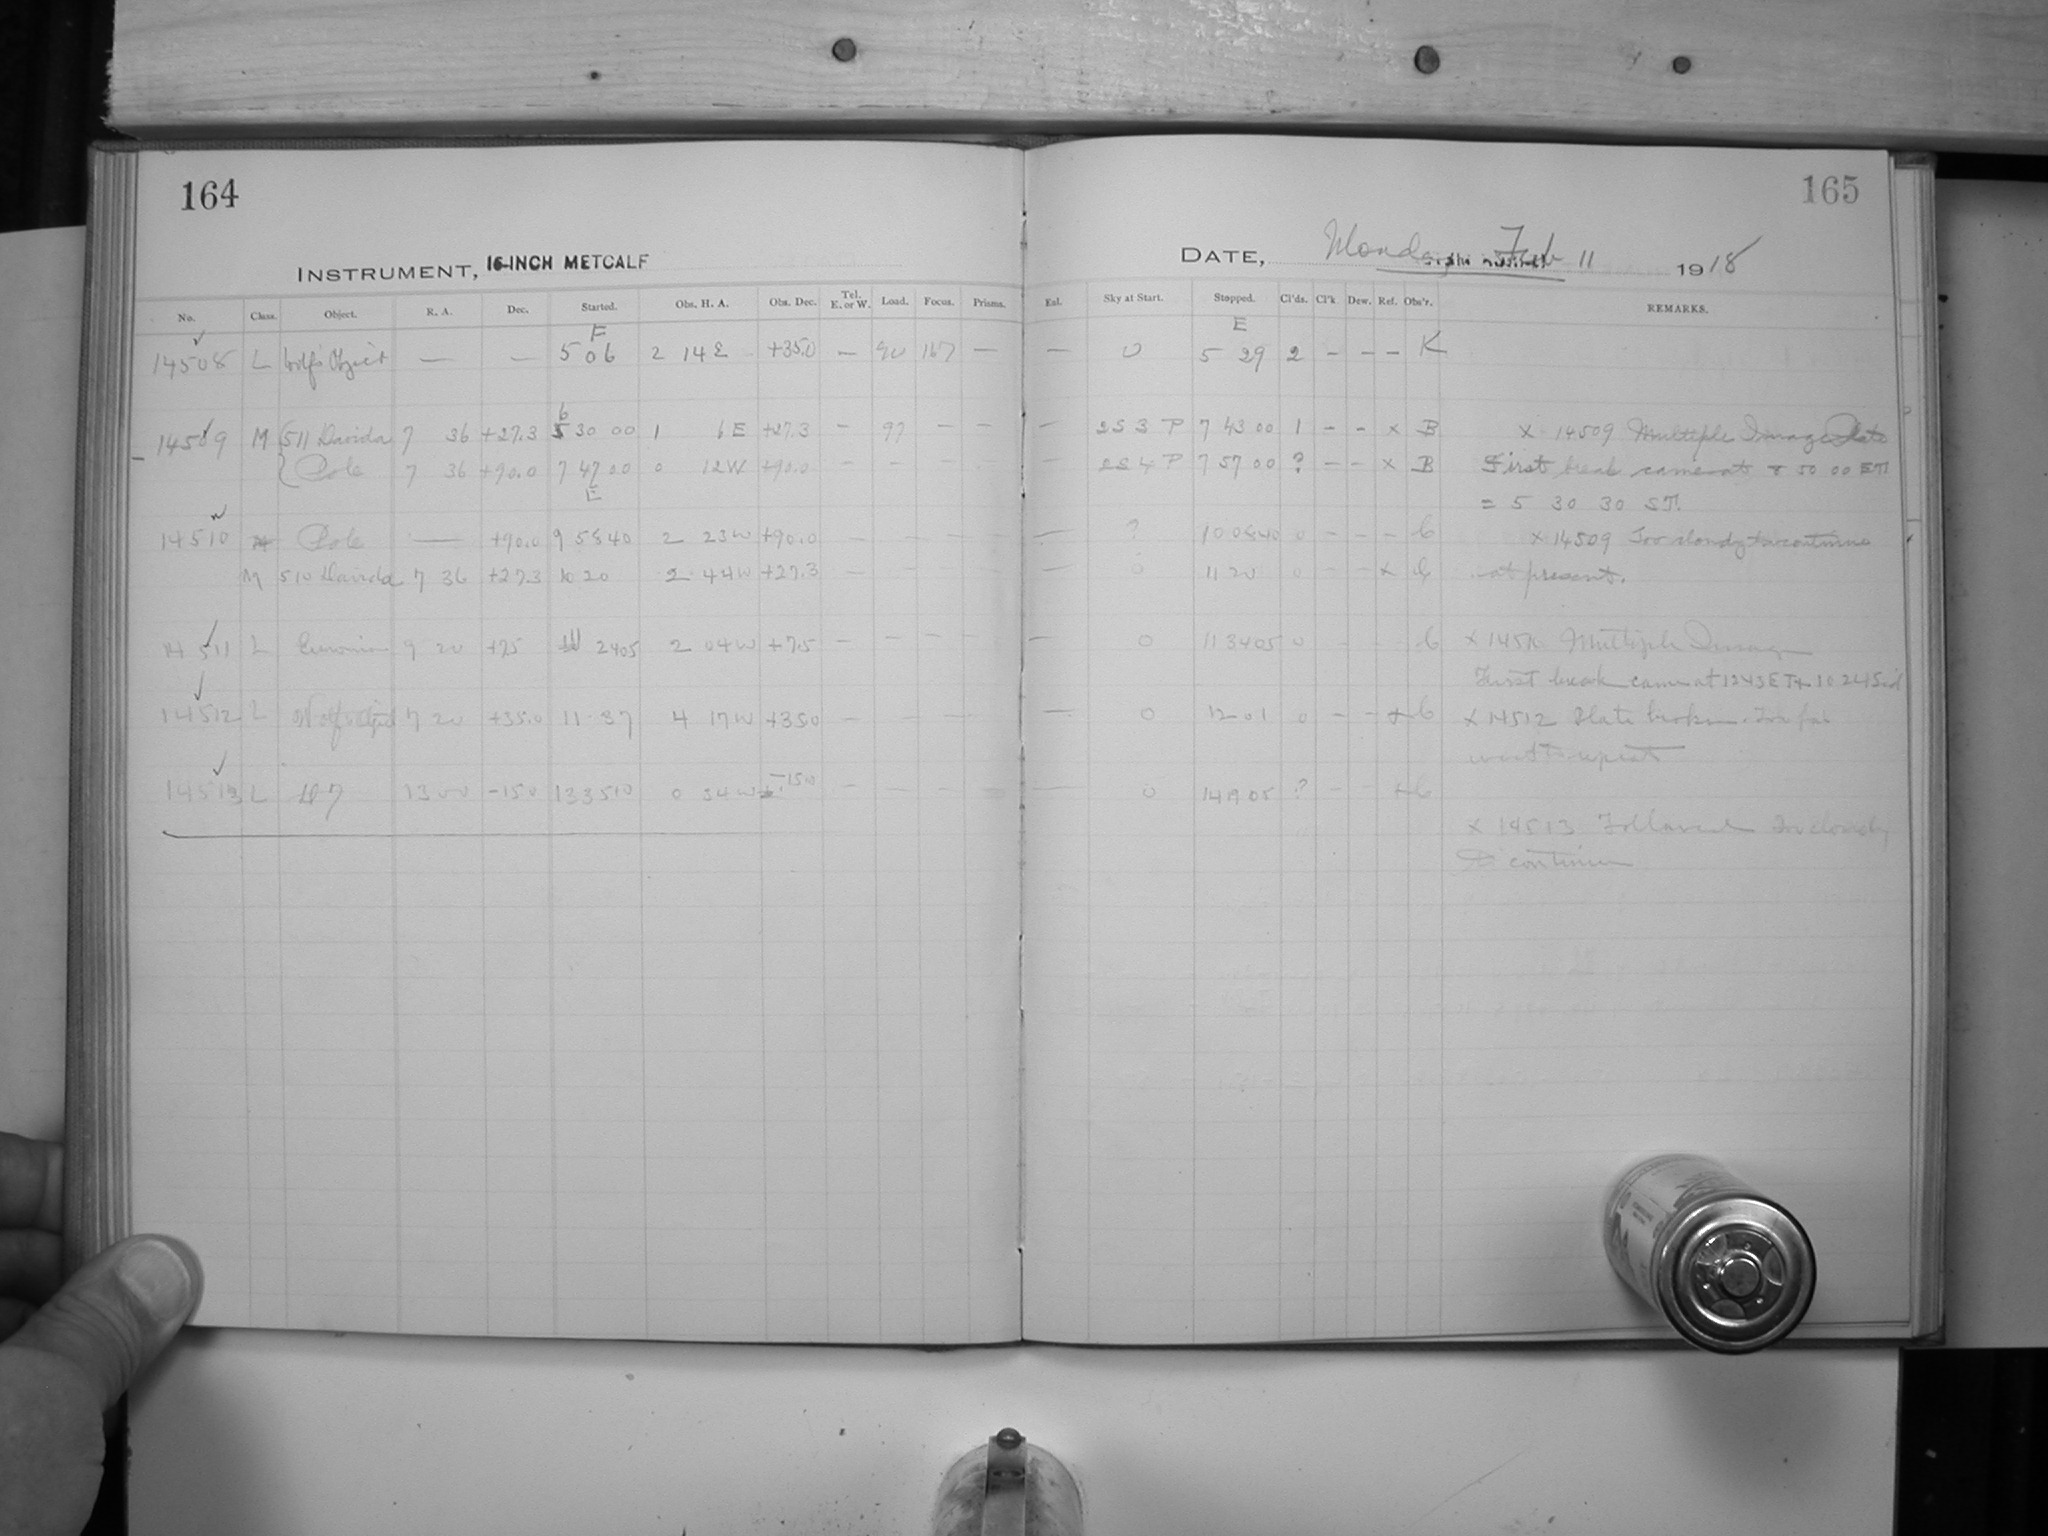 164
INSTRUMENT, 16-INCH METCALF
No. Class. Object. R. A. Dec. Started. Obs. H. A. Obs. Dec. Tel. E. or W. Load. Focus. Prisms.
F
14508 L Wolf's Object — — 5 06 2 14 E +35.0 — 90 167 —
6
14509 M 511 Davida 7 36 +27.3 5 30 00 1 6 E +27.3 — 97 — —
Pole 7 36 +90.0 7 47 00 0 12 W +90.0 — — — —
E
14510 Pole — +90.0 9 58 40 2 23 W +90.0 — — — —
M 510 Davida 7 36 +27.3 10 20 2 44 W +27.3 — — — —
14511 L 9 20 +75 11 24 05 2 04 W +75 — — — —
14512 L Wolf's Object 7 20 +35.0 11 37 4 17 W +350 — — — —
14513 L 13 00 -15.0 13 35 10 0 34 W -15.0 — — — —
165
DATE, Monday Feb 11 1918
Exl. Sky at Start. Stopped. Cl'ds. Cl'k Dew. Ref. Obs'r. REMARKS.
E
— 0 5 29 2 — — — K
— 2S3P 7 43 00 1 — — x B x 14509 Multiple Image Plate
— 2S4P 7 57 00 ? — — x B First break came at 8 50 00 ET
= 5 30 30 ST.
— ? 10 08 40 0 — — — C x 14509 Too cloudy to continue
— 0 11 20 0 — — x C at present.
— 0 11 34 05 0 — — C x 14510 Multiple Image
First break came at 1243 ET + 10 24 Sid
— 0 12 01 0 — — + C x 14512 Plate broken. Too far
west to repeat
— 0 14 19 05 ? — — + C
x 14513 Followed Too cloudy
to continue